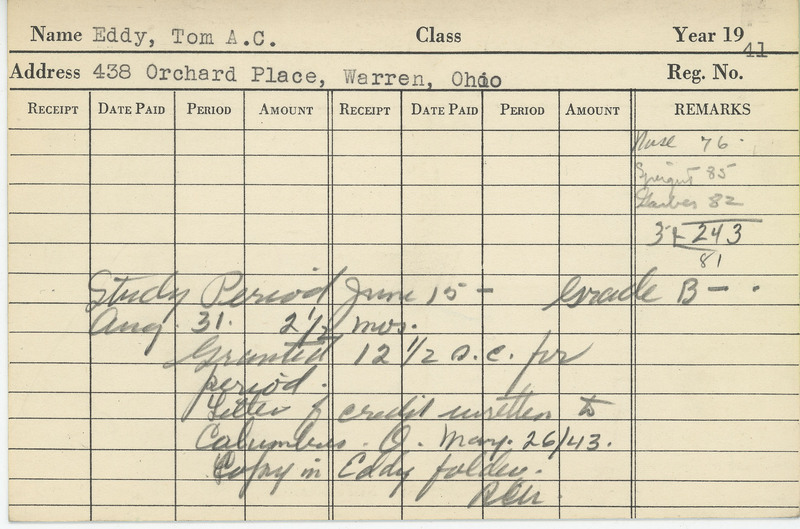 Name Eddy, Tom A.C. Class Year 19 41
Address 438 Orchard Place, Warren, Ohio Reg. No.
RECEIPT DATE PAID PERIOD AMOUNT RECEIPT DATE PAID PERIOD AMOUNT REMARKS
76
85
82
3 243
81
Study Period June 15 - Grade B -
Aug. 31. 2 1/2 mos.
Granted 12 1/2 s.c. for
period.
Letter of credit written to
Columbus. O. May. 26/43.
Copy in Eddy folder.